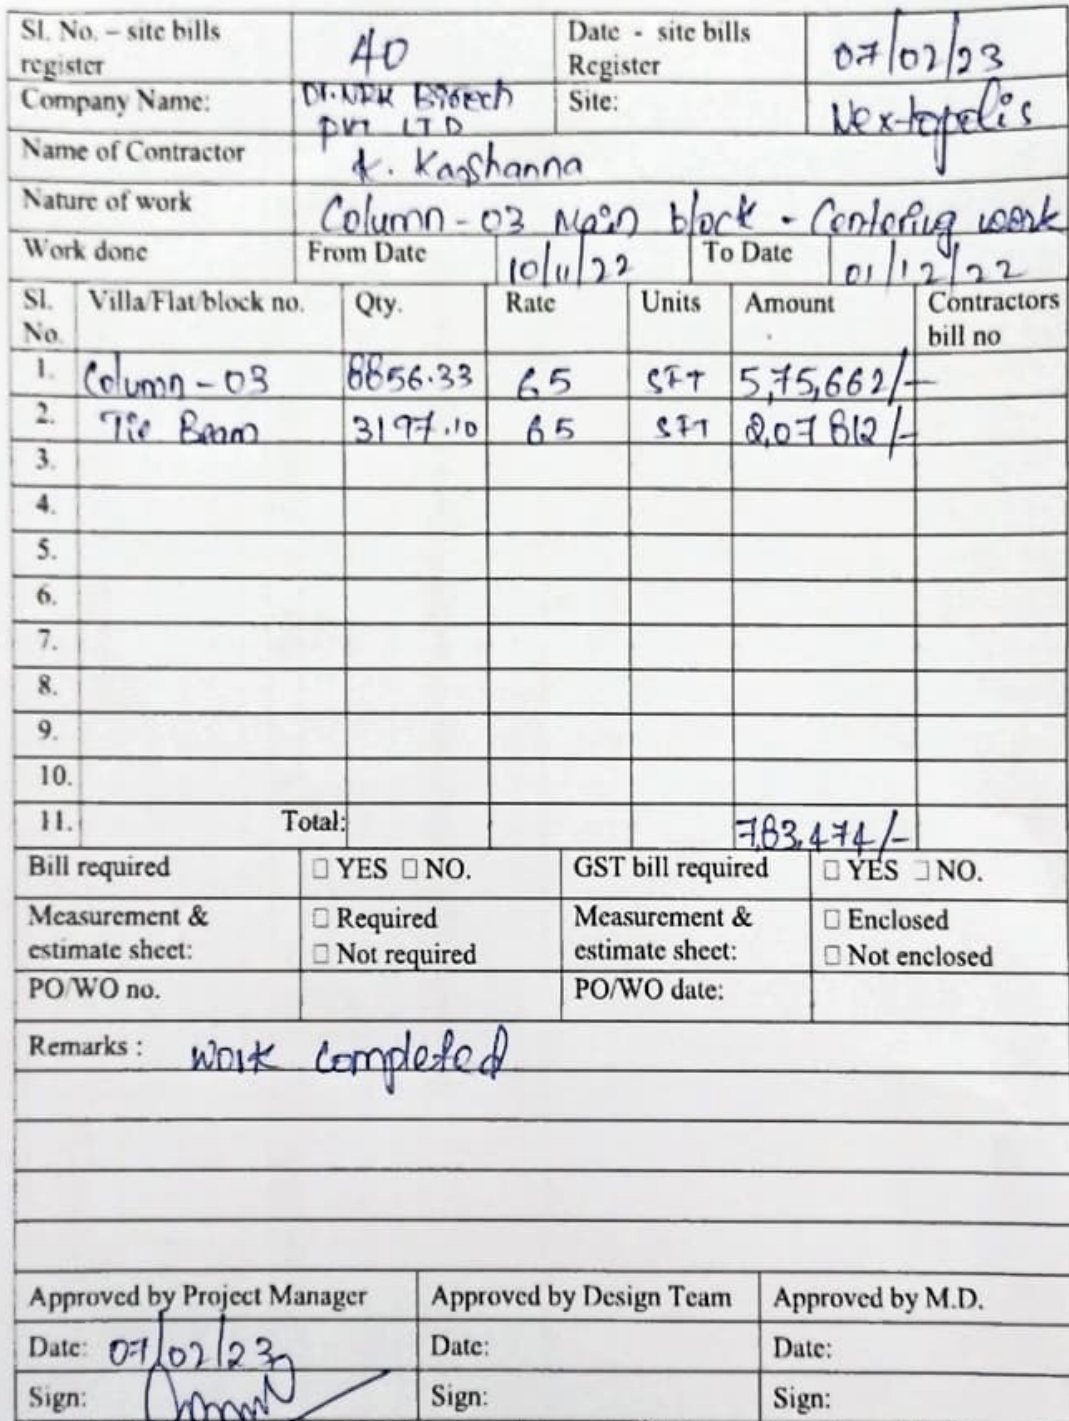 Sl. No. – site bills register 40 Date - site bills Register 07/02/23
Company Name: Dr.NRK Biotech PVT LTD Site: Nextopolis
Name of Contractor K. Kashanna
Nature of work Column-03 Main block - Centering work
Work done From Date 10/11/22 To Date 01/12/22
Sl. No. Villa/Flat/block no. Qty. Rate Units Amount Contractors bill no
1. Column-03 8856.33 65 SFT 5,75,662/-
2. Tie Beam 3197.10 65 SFT 2,07812/-
3.
4.
5.
6.
7.
8.
9.
10.
11. Total: 783,474/-
Bill required □ YES □ NO. GST bill required □ YES □ NO.
Measurement & estimate sheet: □ Required □ Not required Measurement & estimate sheet: □ Enclosed □ Not enclosed
PO/WO no. PO/WO date:
Remarks : Work completed
Approved by Project Manager Approved by Design Team Approved by M.D.
Date: 07/02/23 Date: Date:
Sign: Sign: Sign: